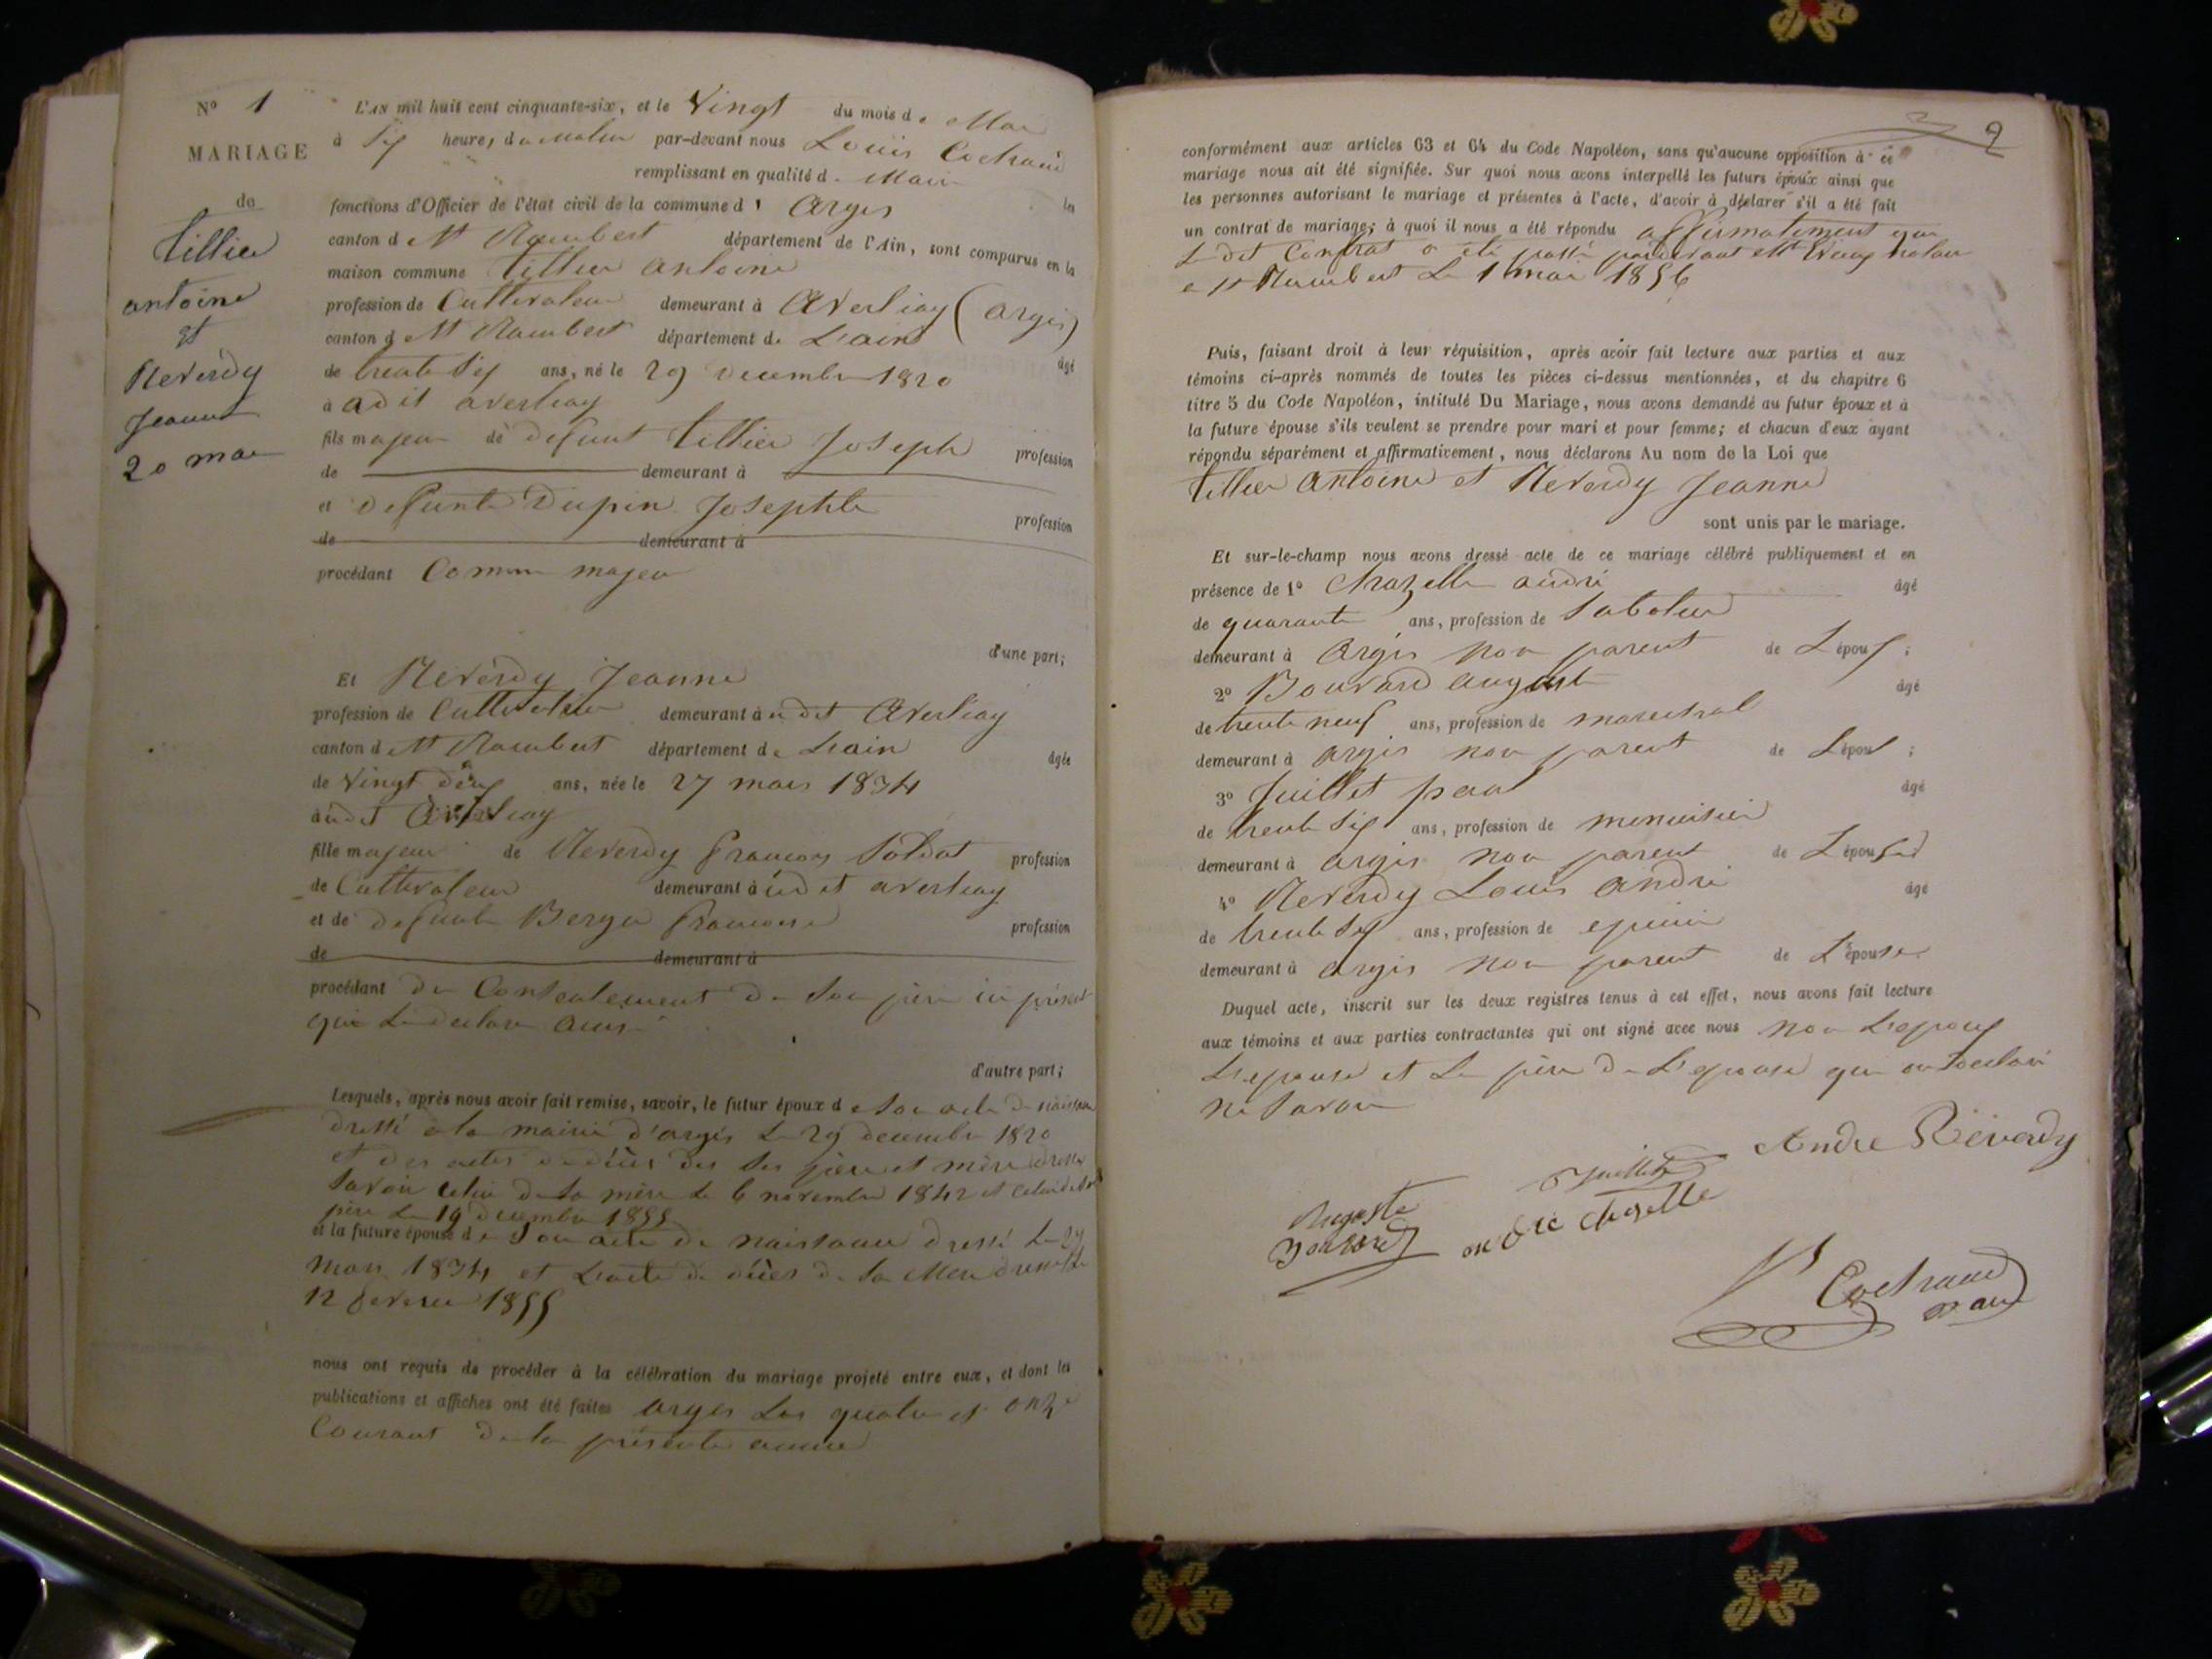 N° 1
MARIAGE
de
tillier
antoine
et
Reverdy
Jeanne
20 mai
L'AN mil huit cent cinquante-six, et le Vingt du mois de Mai
à six heures du matin par-devant nous Louis Cochaud
remplissant en qualité d. Maire les
fonctions d'Officier de l'état civil de la commune d' Argis
canton d St Rambert département de l'Ain, sont comparus en la
maison commune tillier antoine
profession de Cultivateur demeurant à Averliay (argis)
canton d St Rambert département de L'ain âgé
de trente six ans, né le 29 decembre 1820
à adit averliay
fils majeur de defunt tillier Joseph profession
de demeurant à
et defunte Dupin Josephte profession
de demeurant à
procédant Comme majeur
d'une part;
Et Reverdy Jeanne
profession de Cultivateur demeurant à udit Averliay
canton d St Rambert département de L'ain âgée
de Vingt deux ans, née le 27 mars 1834
à udit Averliay
fille majeur de Reverdy françois Soldat profession
de Cultivateur demeurant à udit averliay
et de defunte Berger françoise profession
de demeurant à
procédant du Consentement de Son père ici présent
qui le declare ainsi
d'autre part;
Lesquels, après nous avoir fait remise, savoir, le futur époux de Son acte de naissance
dressé à la mairie d'argis le 29 decembre 1820
et des actes de décès des ses père et mère dressés
Savoir celui de Sa mère le 6 novembre 1842 et celui de Son
père le 19 decembre 1855
et la future épouse de Son acte de naissance dressé le 27
mars 1834 et L'acte de décès de Sa Mere dressé le
12 fevrier 1855
nous ont requis de procéder à la célébration du mariage projeté entre eux, et dont les
publications et affiches ont été faites argis Les quatre et onze
Courant de la présente année
2
conformément aux articles 63 et 64 du Code Napoléon, sans qu'aucune opposition à ce
mariage nous ait été signifiée. Sur quoi nous avons interpellé les futurs époux ainsi que
les personnes autorisant le mariage et présentes à l'acte, d'avoir à déclarer s'il a été fait
un contrat de mariage; à quoi il nous a été répondu affirmativement que
Le dit Contrat a été passé pardevant Mt notaire
a St Rambert Le 1 mai 1856
Puis, faisant droit à leur réquisition, après avoir fait lecture aux parties et aux
témoins ci-après nommés de toutes les pièces ci-dessus mentionnées, et du chapitre 6
titre 5 du Code Napoléon, intitulé Du Mariage, nous avons demandé au futur époux et à
la future épouse s'ils veulent se prendre pour mari et pour femme; et chacun d'eux ayant
répondu séparément et affirmativement, nous déclarons Au nom de la Loi que
tillier Antoine et Reverdy Jeanne
sont unis par le mariage.
Et sur-le-champ nous avons dressé acte de ce mariage célébré publiquement et en
présence de 1° Chazelle andré âgé
de quarante ans, profession de Saboteur
demeurant à Argis non parent de L'époux ;
2° Bouvard august âgé
de trente neuf ans, profession de marechal
demeurant à argis non parent de L'époux ;
3° Juillet paul âgé
de trente six ans, profession de menuisier
demeurant à argis non parent de L'épouse
4° Reverdy Louis andré âgé
de trente six ans, profession de epicier
demeurant à argis non parent de L'épouse
Duquel acte, inscrit sur les deux registres tenus à cet effet, nous avons fait lecture
aux témoins et aux parties contractantes qui ont signé avec nous non L'epoux
L'epouse et Le père de L'epouse qui ont declaré
ne Savoir
Andre Réverdy
Juillet
Auguste
Bouvard
andré chazelle
Cochaud
maire